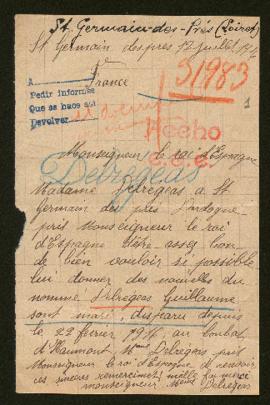 St. Germain-des-Prés (Loiret)
St Germain des pres 12 Juillet
France
51983
A
Pedir informes
Que se haos sul
Devolver
1
Hecho
Monseigneur le roi d'Espagne
Delrégeas
Madame Delregeas a St
Germain des prés Dordogne
pris Monseigneur le roi
d'Espagne d'être assez bon
de bien vouloir si possible
lui donner des nouvelles du
nommé Delregeas Guillaume
sont mari disparu depuis
le 22 février 1916 au combat
d'Haumont Mme Delregeas pris
Monseigneur le roi d'Espagne de recevoir
ces sincères remerciments mille fois merci
monseigneur Mme Delregeas